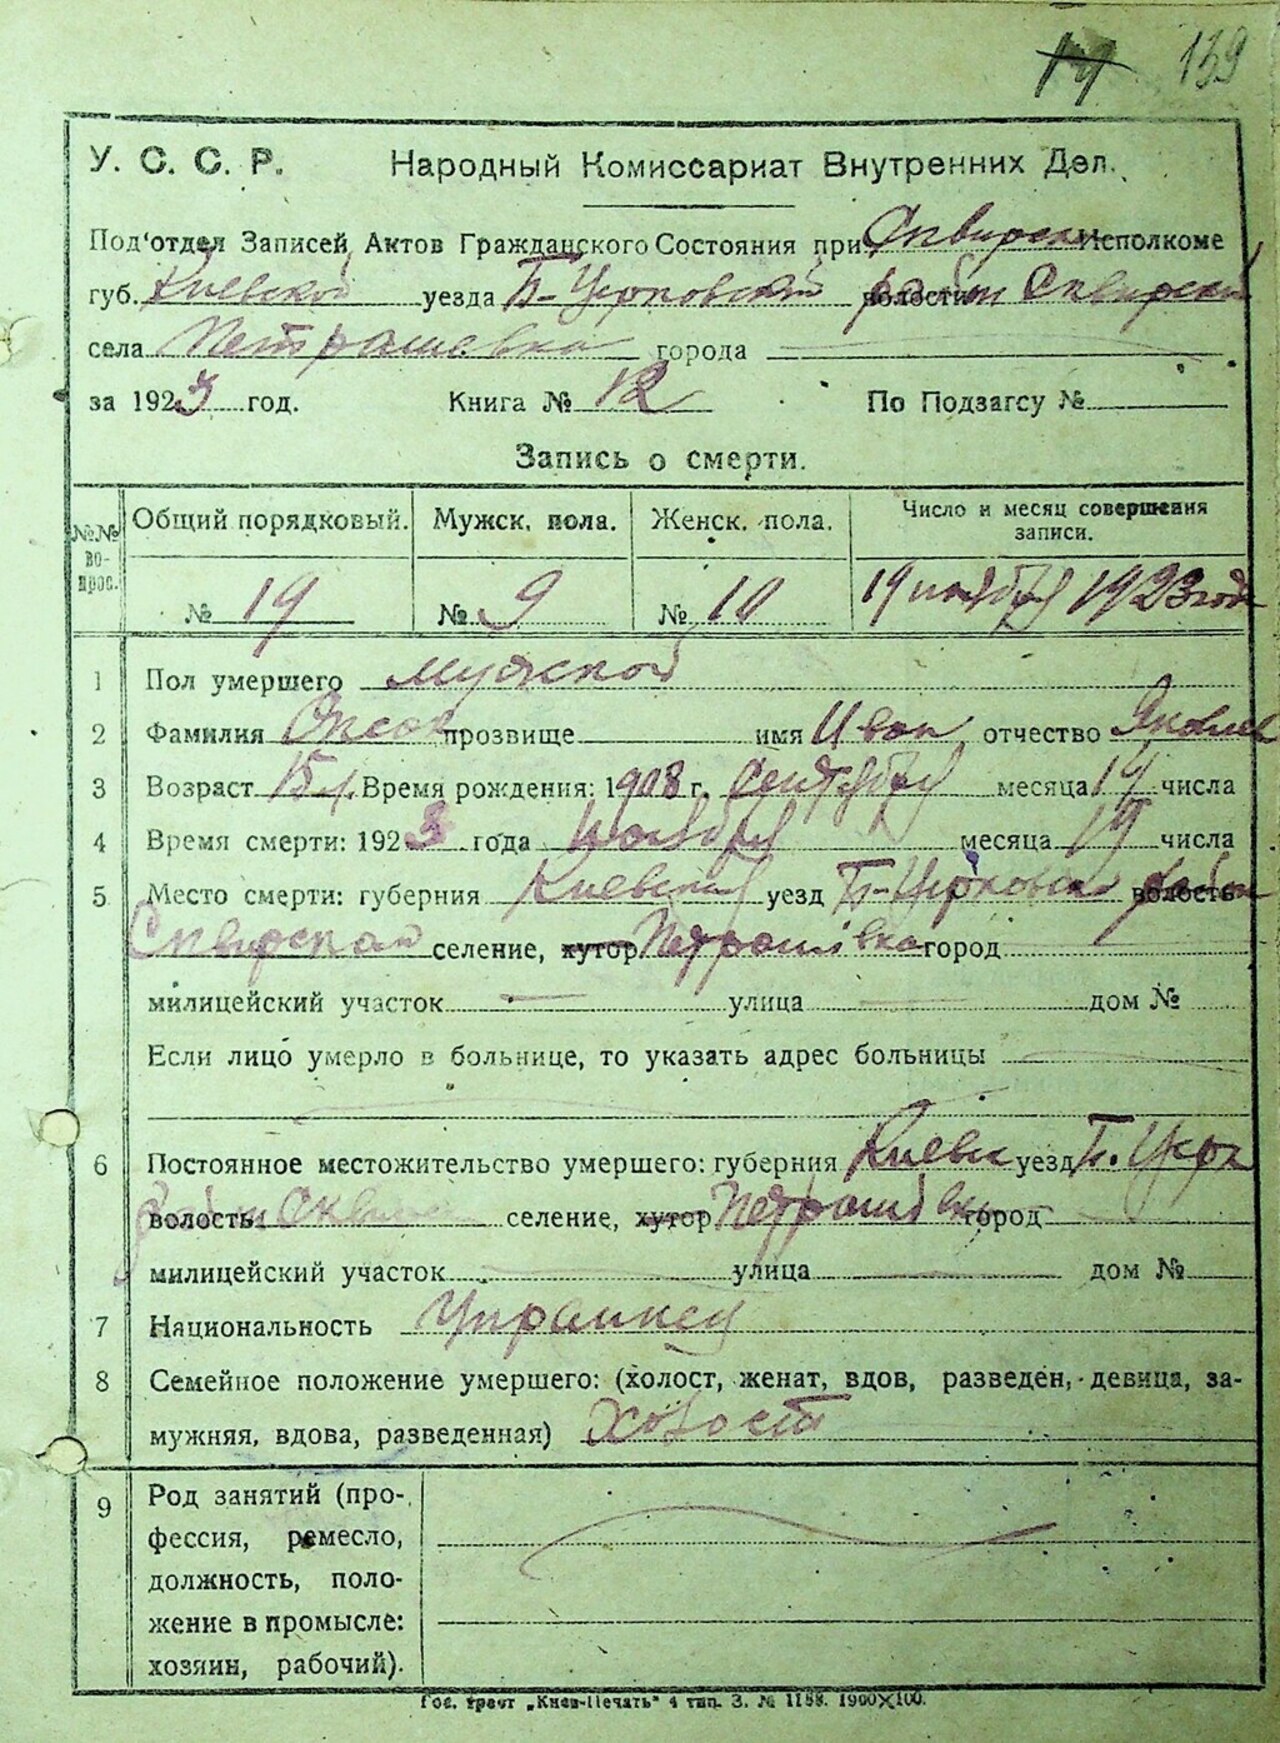 139
У. С. С. Р. Народный Комиссариат Внутренних Дел.
Под'отдел Записей Актов Гражданского Состояния при Сквирском Исполкоме
губ. Киевской уезда Б-Церковский волости район Сквирский
села Петрашевка города
за 1923 год. Книга № 12 По Подзагсу №
Запись о смерти.
№№ вопрос. Общий порядковый. Мужск. пола. Женск. пола. Число и месяц совершения записи.
№ 19 № 9 № 10 19 ноября 1923 года
1 Пол умершего мужской
2 Фамилия прозвище имя Иван отчество Яковлев
3 Возраст 15 л. Время рождения: 1908 г. Сентября месяца 14 числа
4 Время смерти: 1923 года Ноября месяца 19 числа
5 Место смерти: губерния Киевская уезд Б-Церковский волость район
Сквирский селение, хутор Петрашівка город
милицейский участок улица дом №
Если лицо умерло в больнице, то указать адрес больницы
6 Постоянное местожительство умершего: губерния Киевск уезд Б. Церк
волость район Сквирс селение, хутор Петрашівка город
милицейский участок улица дом №
7 Национальность Украинец
8 Семейное положение умершего: (холост, женат, вдов, разведен, девица, за-
мужняя, вдова, разведенная) Холост
9 Род занятий (про-
фессия, ремесло,
должность, поло-
жение в промысле:
хозяин, рабочий).
Гос. трест „Киев-Печать" 4 тип. З. № 1158. 1900×100.